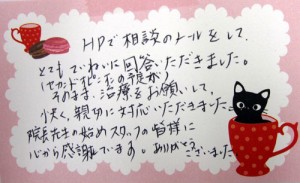 HPで相談のメールをして、
とてもていねいに回答いただきました。
(セカンドオピニオンの予定が)
そのまま、治療をお願いして、
快く、親切に対応いただきました。
院長先生の始めスタッフの皆様に
心から感謝しています。ありがとう
ございました